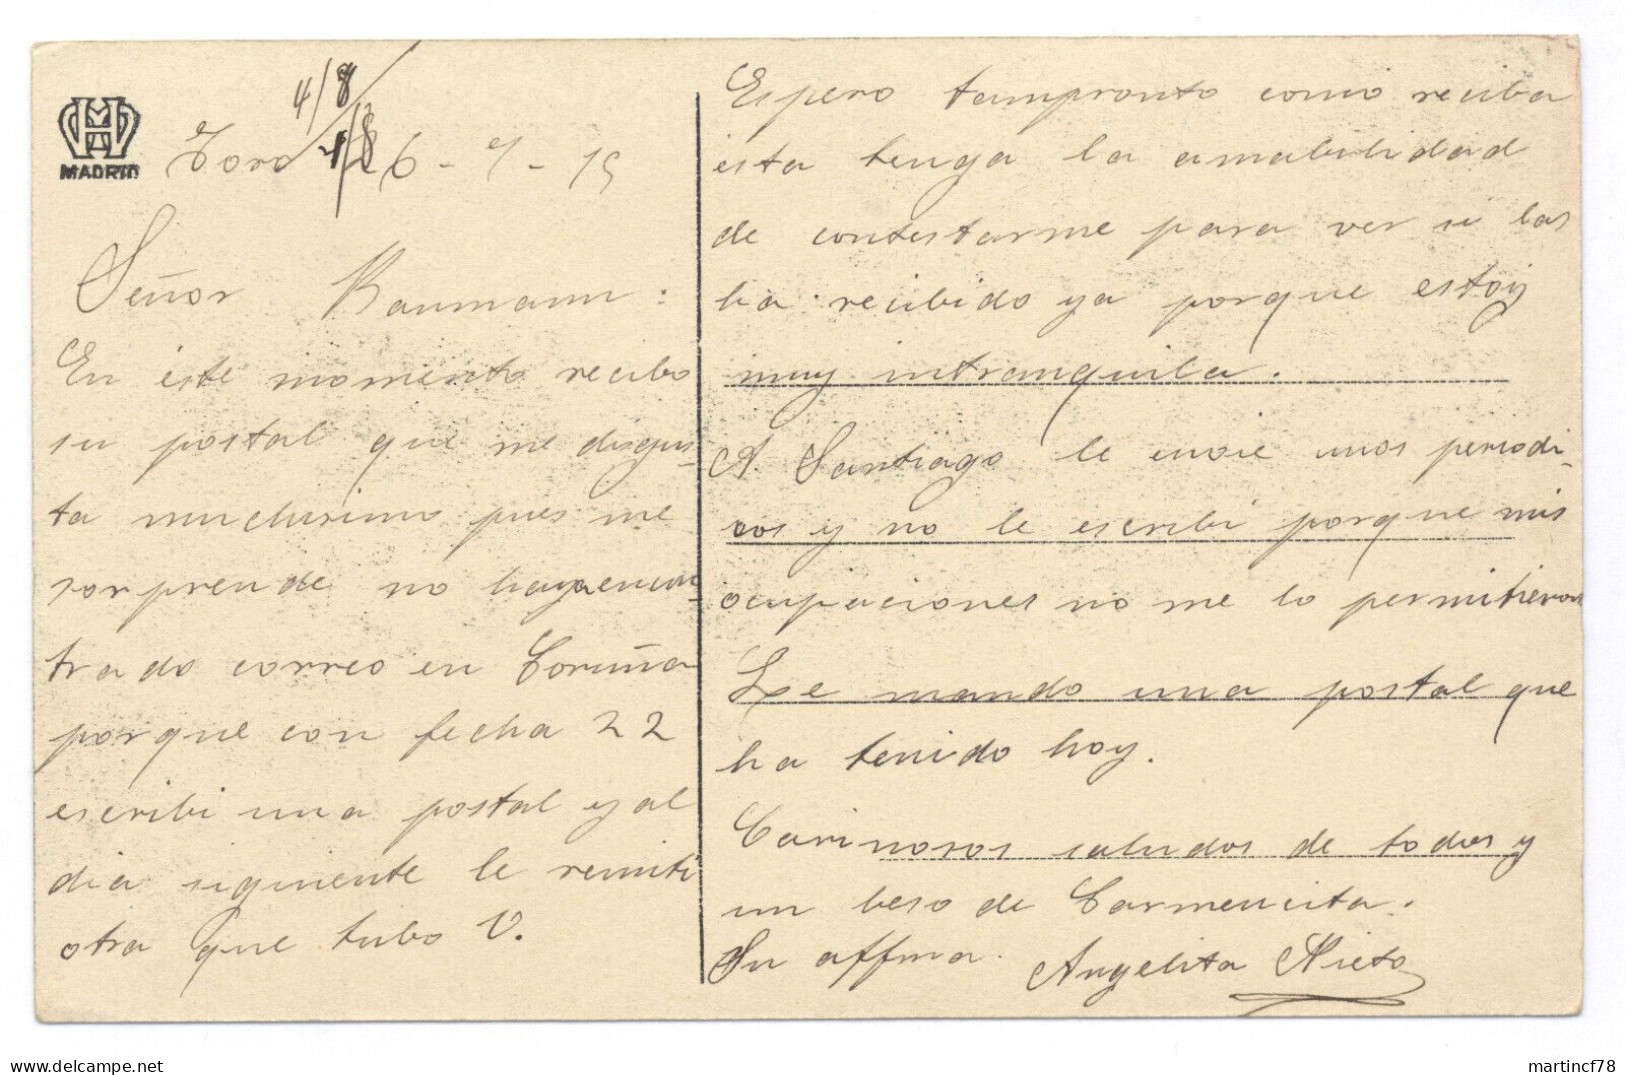 MADRID
4/8
Toro 26-7-15
Señor Baumann:
En este momento recibo
su postal que me disgus-
ta muchisimo pues me
sorprende no haya encon-
trado correo en Coruña
porque con fecha 22
escribi una postal y al
dia siguiente le remiti
otra que tubo V.
Espero tampronto como reciba
esta tenga la amabilidad
de contestarme para ver si las
ha recibido ya porque estoy
muy intranquila.
A Santiago le envie unos periodi-
cos y no le escribi porque mis
ocupaciones no me lo permitieron
Le mando una postal que
ha tenido hoy.
Carinosos saludos de todos y
un beso de Carmencita.
Su affma. Angelita Nieto
martincf78